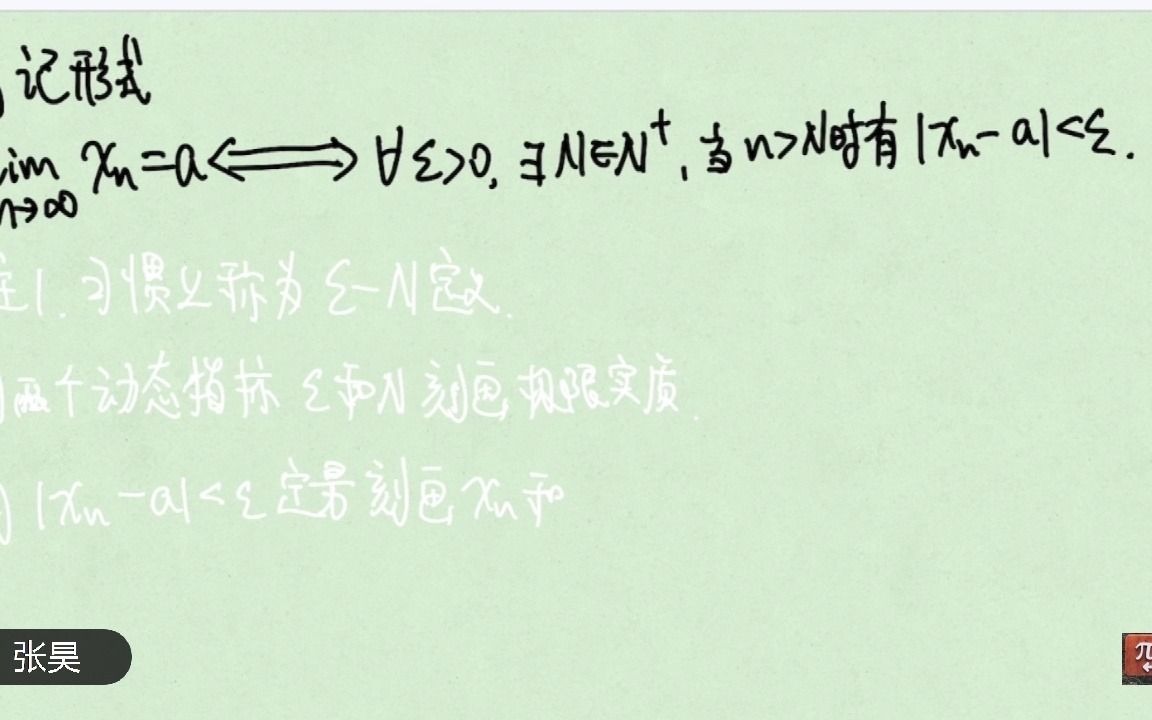 记形式
lim xₙ=a ⟺ ∀ε>0, ∃N∈N⁺, 当n>N时有|xₙ-a|<ε.
n→∞
注1. 习惯上称为ε-N定义.
两个动态指标ε和N刻画极限实质.
|xₙ-a|<ε定量刻画xₙ和
张昊
π